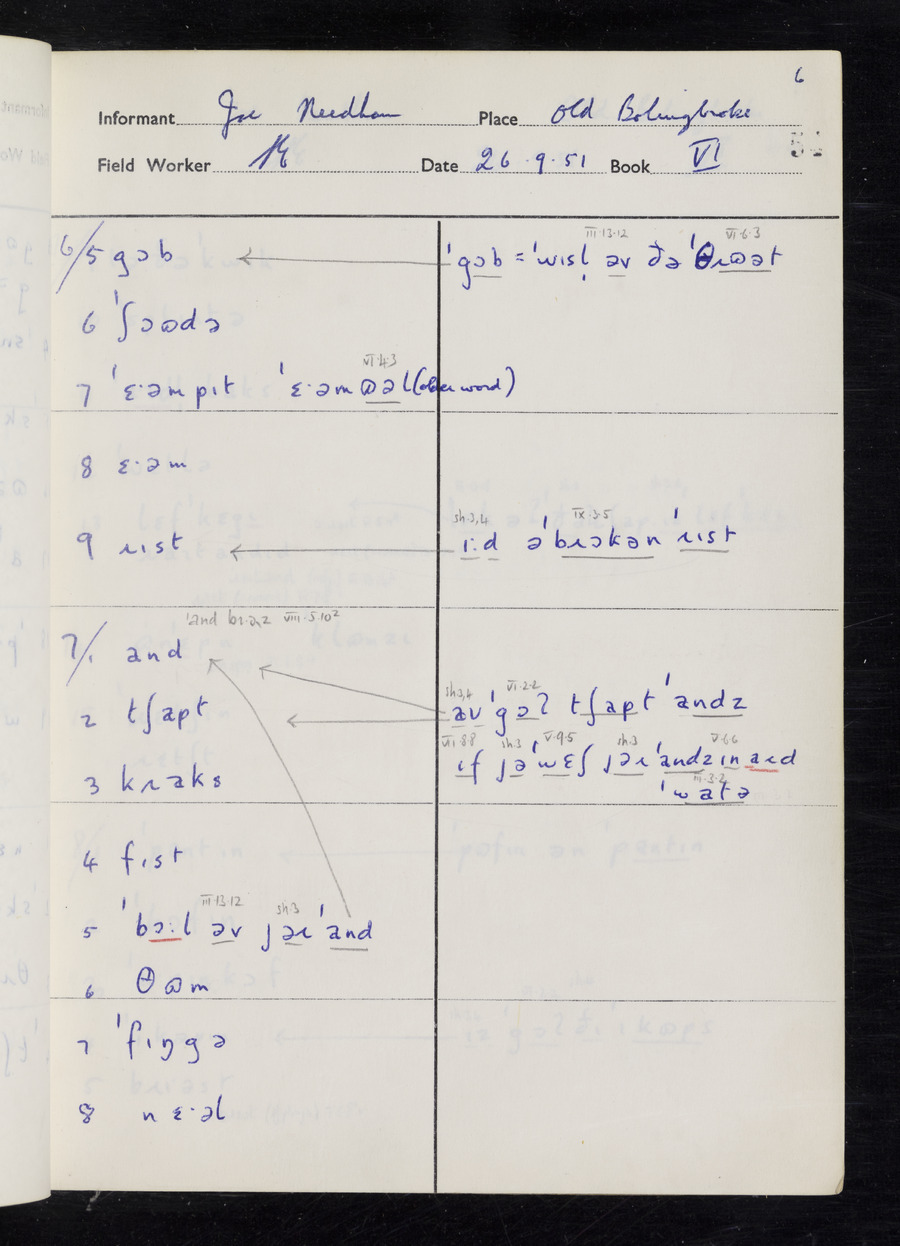 6
Informant Joe Needham Place Old Bolingbroke
Field Worker Date 26.9.51 Book VI
III.13.12 VI.6.3
6/5 gɔb ˈgɔb = ˈwɪsl̩ əv ðə ˈθɹɷət
6 ˈʃɔɷdə
VI.4.3
7 ˈɛ·əmpɪt ˈɛ·əmɷəl (older word)
8 ɛ·əm
sh.3,4 IX.3.5
9 ɹɪst i:d əˈbɹɔkən ˈɹɪst
ˈand VIII.5.10²
7/1 and
sh.3,4 VI.2.2
2 tʃapt av ˈgɔʔ tʃapt ˈandz
VII.8.8 sh.3 V.9.5 sh.3 V.6.6
3 kɹaks ɪf jə ˈwɛʃ jəɹ ˈandz ɪn aɪd
III.3.2
ˈwatə
4 fɪst
III.13.12 sh.3
5 ˈbɔ:l əv jəɹ ˈand
6 θɷm
7 ˈfɪŋgə
8 nɛ·əl